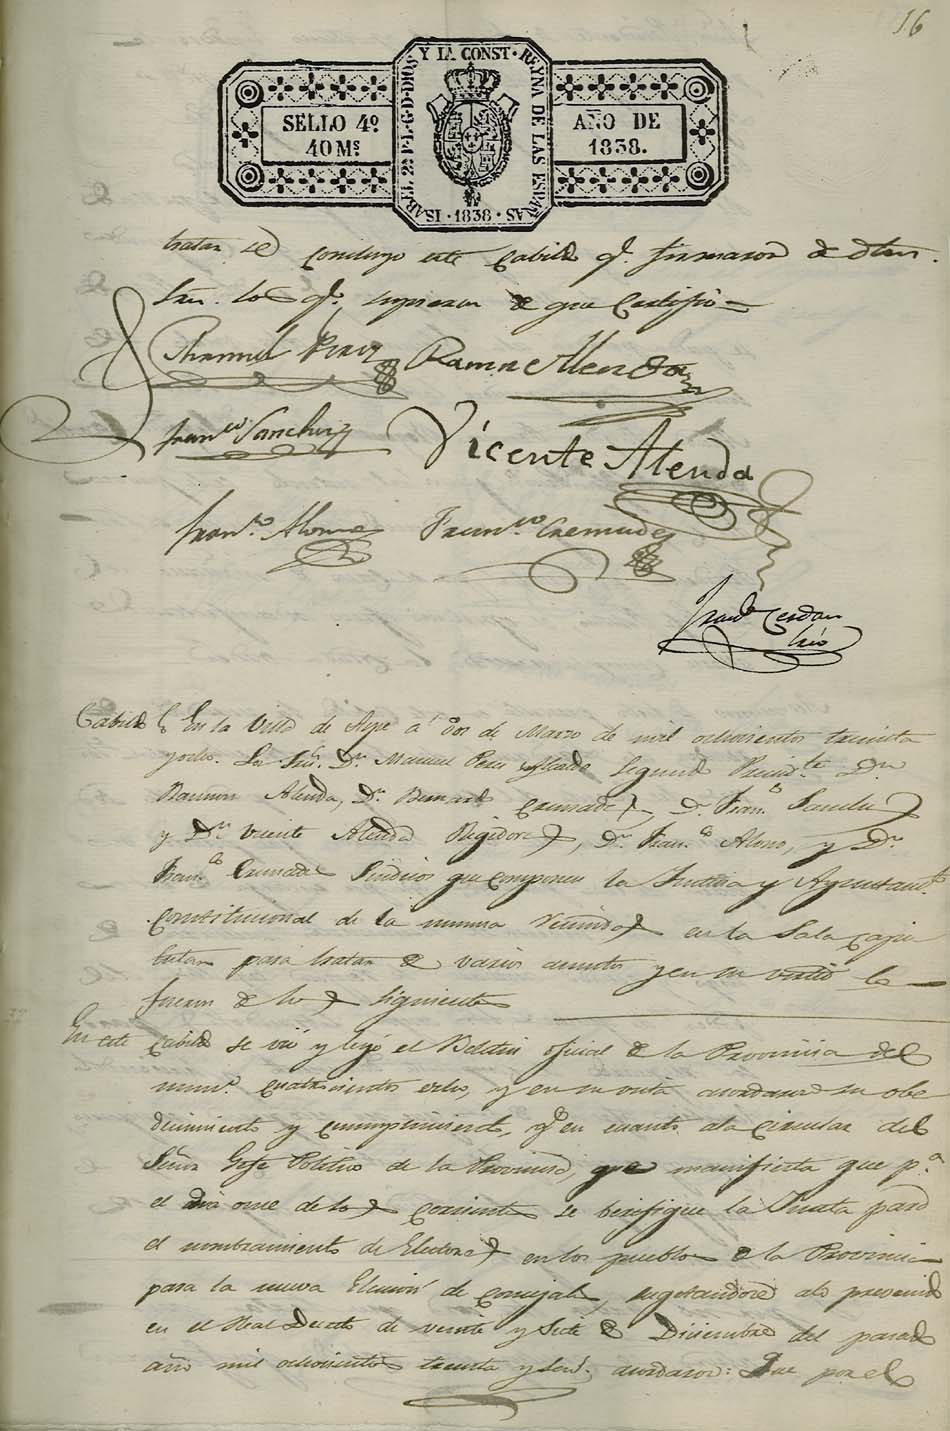 16
SELLO 4º
40 Mˢ
ISABEL 2ª P. L. G. D. DIOS Y LA CONST. REYNA DE LAS ESPAÑAS
· 1838 ·
AÑO DE
1838.
tratar se concluyo este Cabildo q.e firmaron de
los q.e supieron de que Certifico =
Manuel Perez Ramon Alenda
Fran.co Sanchez Vicente Alenda
Fran.co Alonso Fran.co Cremades
Fran.co Cerdan
srio
Cabildo En la Villa de Aspe a dos de Marzo de mil ochocientos treinta
yocho. Los Sres. Dn. Manuel Perez Alcalde Segundo Presid.te Dn.
Ramon Alenda, Dn. Bernardo Cremades, Dn. Fran.co Sanchez
y Dn. Vicente Alenda Regidores, Dn. Fran.co Alonso, y Dn.
Fran.co Cremades Sindicos que componen la Justicia y Ayuntam.to
Constitucional de la misma reunidos en la Sala capi
tular para tratar de varios asuntos y en su virtud lo
fueron de los siguientes
En este Cabildo se vió y leyó el Boletin oficial de la Provincia del
num.o cuatrocientos ocho, y en su vista acordaron su obe
decimiento y cumplimiento, q.e en cuanto ala circular del
Señor Gefe Politico de la Provincia, que manifiesta que p.a
el dia once de los corrientes se berifique la Junta para
el nombramiento de Electores en los pueblos de la Provincia
para la nueva Eleccion de concejales, sugetandose alo prevenido
en el Real Decreto de veinte y siete de Diciembre del pasado
año mil ochocientos treinta y seis, acordaron: Que por el